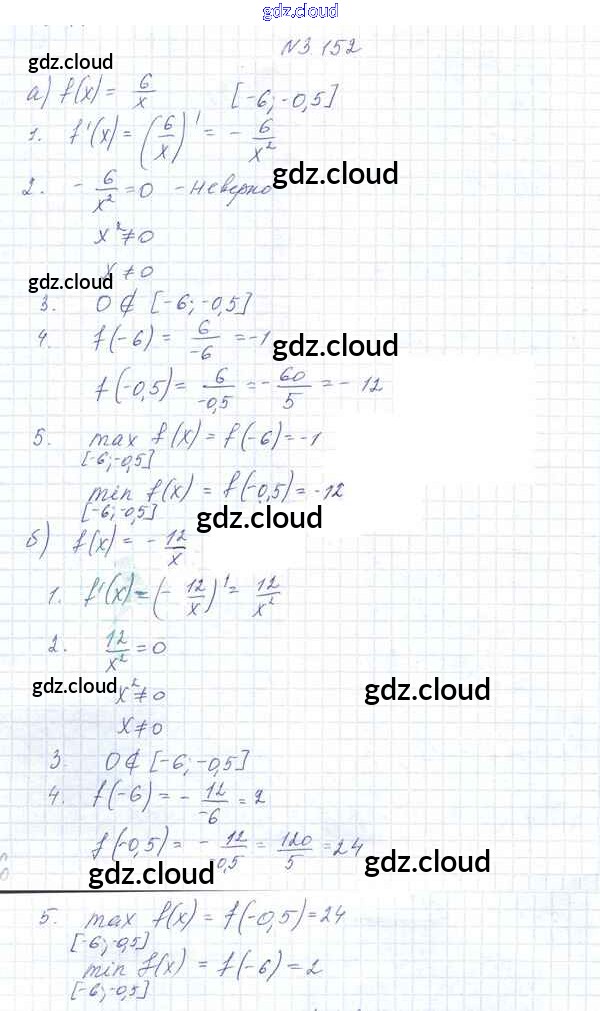 gdz.cloud
N3.152
gdz.cloud
а) f(x) = 6/x [-6; -0,5]
1. f'(x) = (6/x)' = - 6/x²
gdz.cloud
2. - 6/x² = 0 - неверно
x² ≠ 0
x ≠ 0
gdz.cloud
3. 0 ∉ [-6; -0,5]
4. f(-6) = 6/-6 = -1
gdz.cloud
f(-0,5) = 6/-0,5 = - 60/5 = - 12
5. max f(x) = f(-6) = -1
[-6; -0,5]
min f(x) = f(-0,5) = -12
[-6; -0,5]
gdz.cloud
б) f(x) = - 12/x
1. f'(x) = (- 12/x)' = 12/x²
2. 12/x² = 0
gdz.cloud gdz.cloud
x² ≠ 0
x ≠ 0
3. 0 ∉ [-6; -0,5]
4. f(-6) = - 12/-6 = 2
f(-0,5) = - 12/-0,5 = 120/5 = 24
gdz.cloud
gdz.cloud
5. max f(x) = f(-0,5) = 24
[-6; -0,5]
min f(x) = f(-6) = 2
[-6; -0,5]